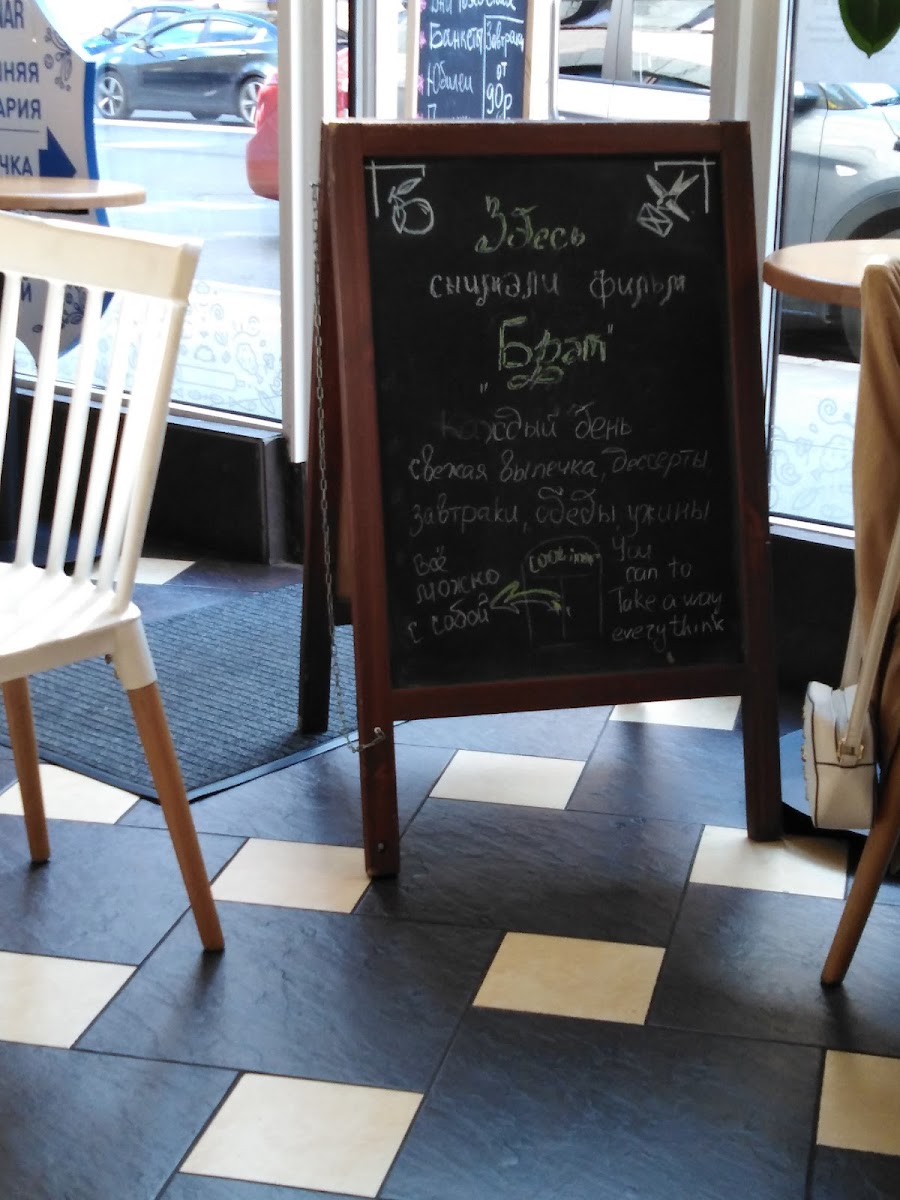 НАЯ
АРИЯ
ЧКА
Банкеты
Завтраки
Юбилеи
от
90р
Здесь
снимали фильм
„Брат"
каждый день
свежая выпечка, десерты
завтраки, обеды, ужины
Всё
можно
с собой
You
can to
Take a way
everythink